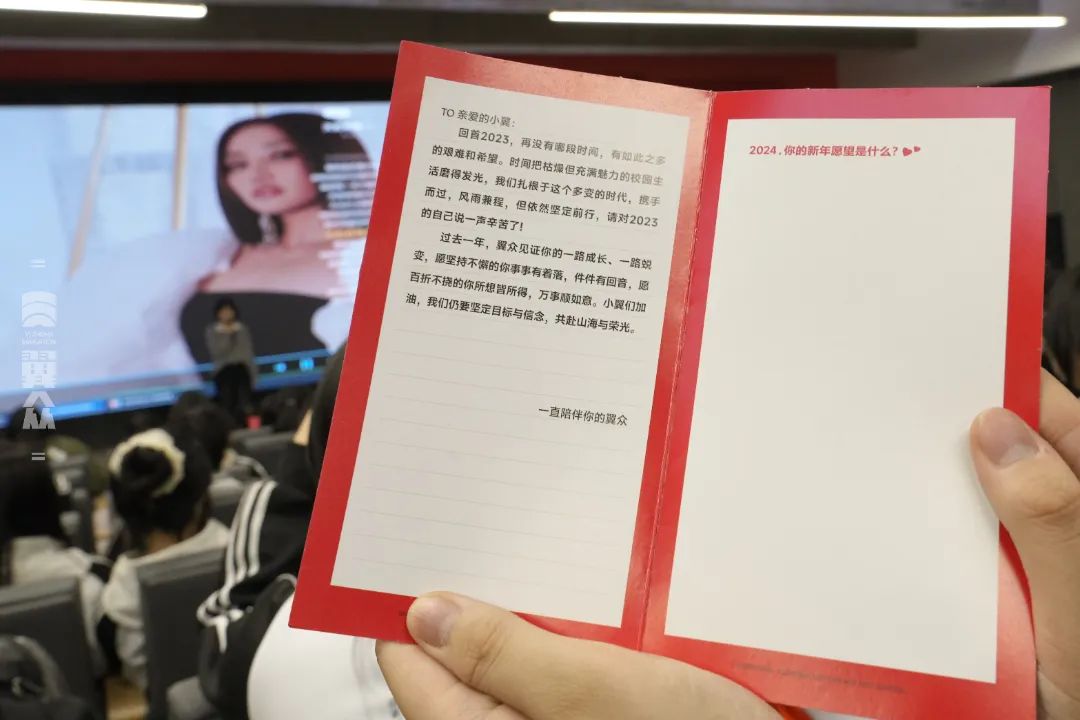 TO 亲爱的小翼：
回首2023，再没有哪段时间，有如此之多
的艰难和希望。时间把枯燥但充满魅力的校园生
活磨得发光，我们扎根于这个多变的时代，携手
而过，风雨兼程，但依然坚定前行，请对2023
的自己说一声辛苦了！
过去一年，翼众见证你的一路成长、一路蜕
变，愿坚持不懈的你事事有着落，件件有回音，愿
百折不挠的你所想皆所得，万事顺如意。小翼们加
油，我们仍要坚定目标与信念，共赴山海与荣光。
一直陪伴你的翼众
2024，你的新年愿望是什么？
翼众